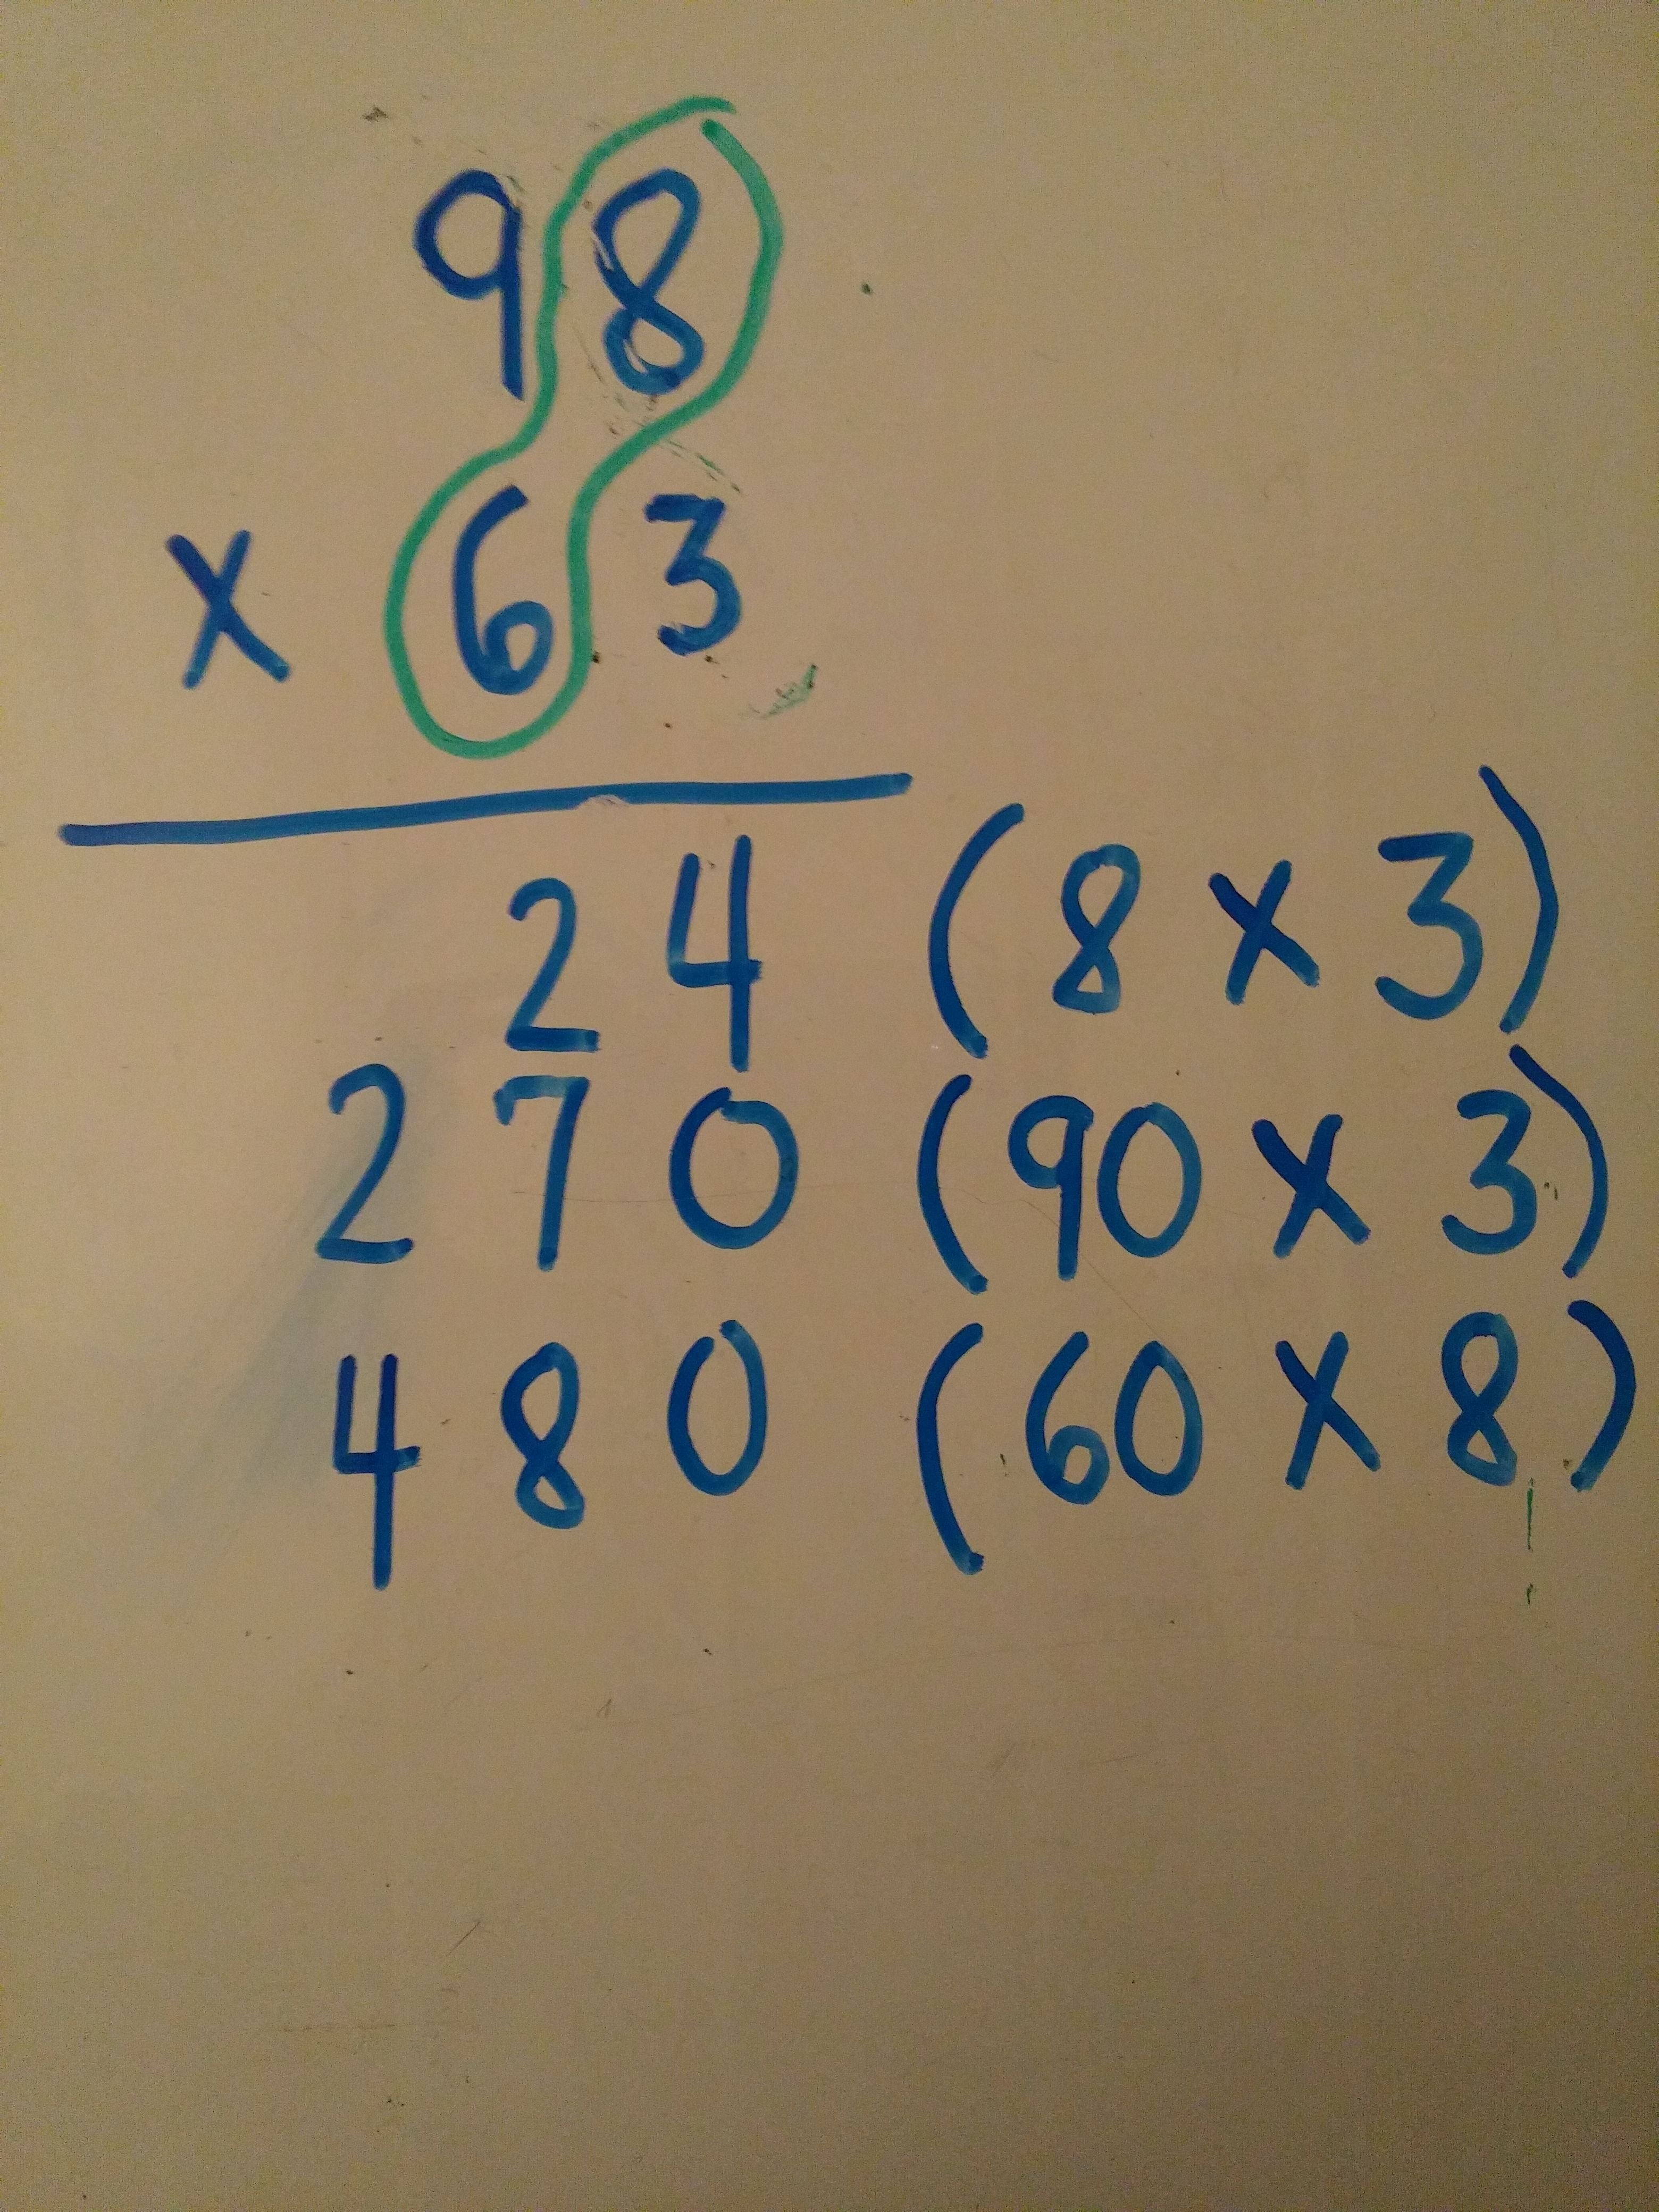 98
x 63
24 (8 x 3)
270 (90 x 3)
480 (60 x 8)